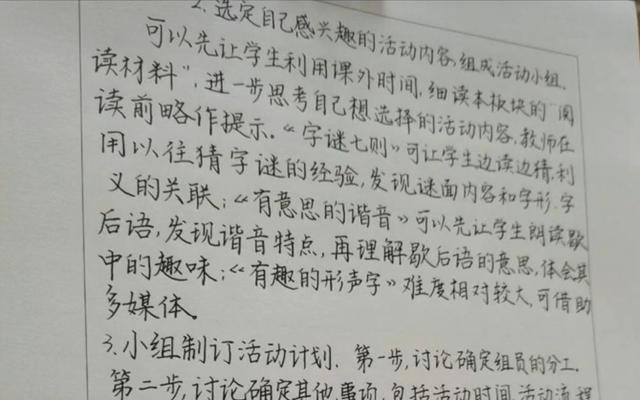 2. 选定自己感兴趣的活动内容,组成活动小组.
可以先让学生利用课外时间,细读本板块的“阅
读材料”,进一步思考自己想选择的活动内容,教师在
读前略作提示。《字谜七则》可让学生边读边猜,利
用以往猜字谜的经验,发现谜面内容和字形、字
义的关联;《有意思的谐音》可以先让学生朗读歇
后语,发现谐音特点,再理解歇后语的意思,体会其
中的趣味;《有趣的形声字》难度相对较大,可借助
多媒体。
3. 小组制订活动计划. 第一步,讨论确定组员的分工.
第二步,讨论确定其他事项,包括活动时间,活动流程